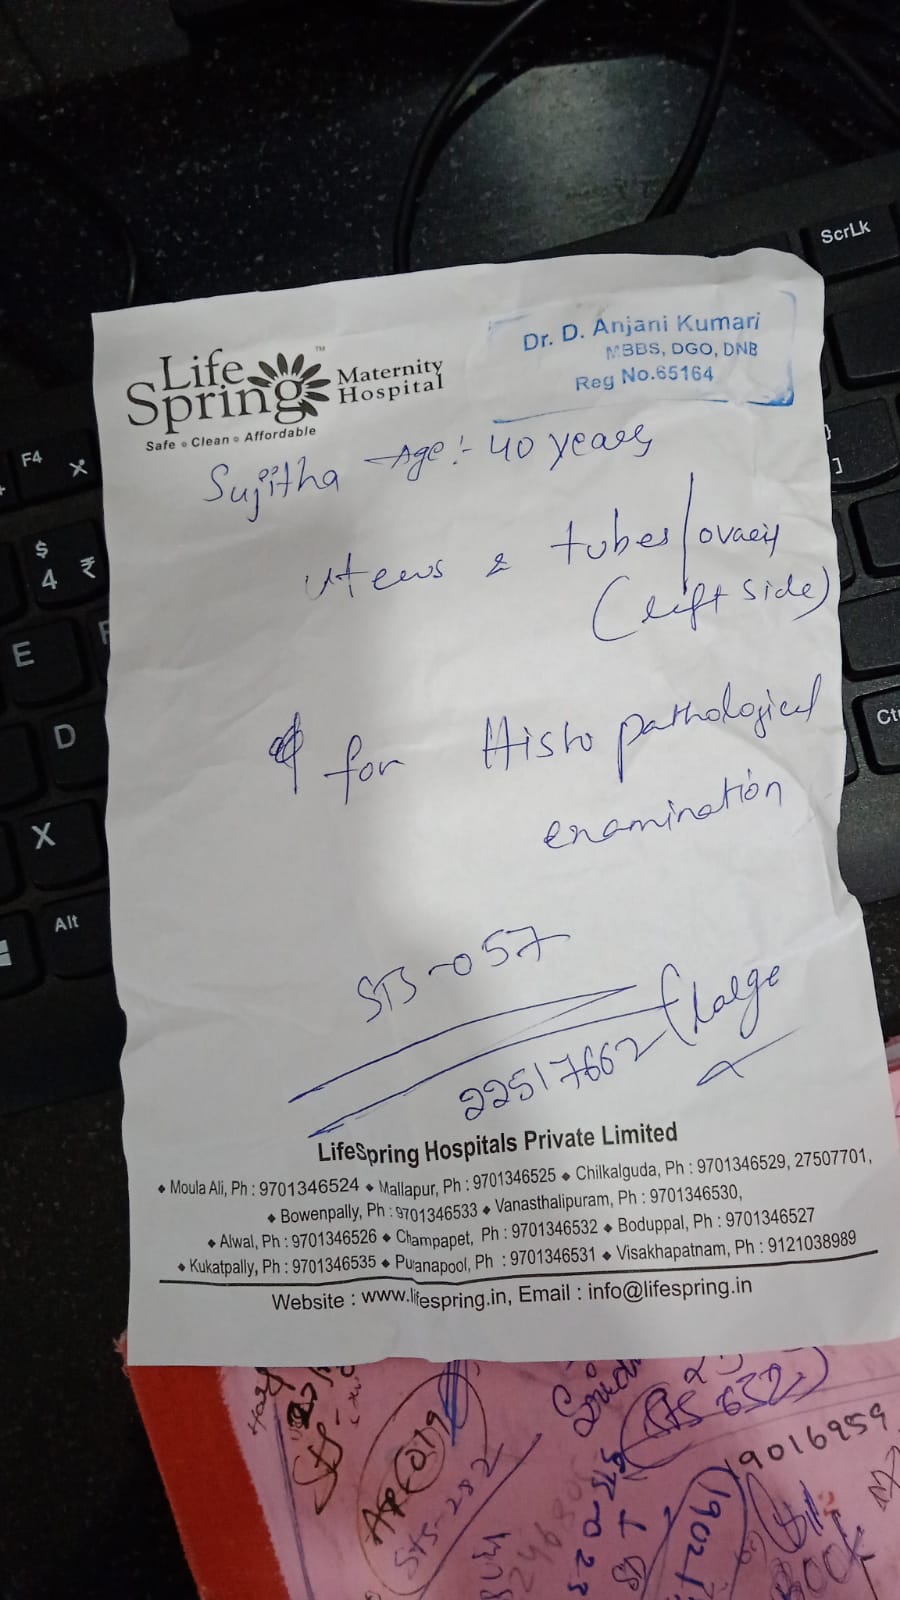 Life
Spring
TM
Maternity
Hospital
Safe • Clean • Affordable
Dr. D. Anjani Kumari
MBBS, DGO, DNB
Reg No.65164
Sujitha Age:- 40 years
uterus & tubes/ovary
(left side)
for Histo pathological
examination
STS-057
22517662 (large
LifeSpring Hospitals Private Limited
◆ Moula Ali, Ph : 9701346524 ◆ Mallapur, Ph : 9701346525 ◆ Chilkalguda, Ph : 9701346529, 27507701,
◆ Bowenpally, Ph : 9701346533 ◆ Vanasthalipuram, Ph : 9701346530,
◆ Alwal, Ph : 9701346526 ◆ Champapet, Ph : 9701346532 ◆ Boduppal, Ph : 9701346527
◆ Kukatpally, Ph : 9701346535 ◆ Puranapool, Ph : 9701346531 ◆ Visakhapatnam, Ph : 9121038989
Website : www.lifespring.in, Email : info@lifespring.in
ScrLk
F4
$
4 ₹
E
D
X
Alt
STS-282
STS-023
19016959